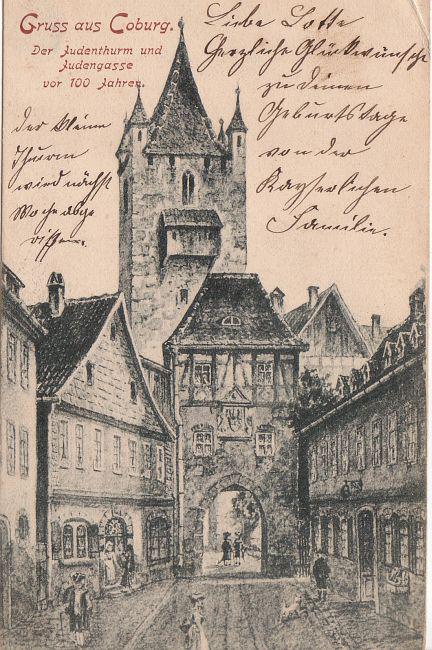 Gruss aus Coburg.
Der Judenthurm und
Judengasse
vor 100 Jahren.
Liebe Lotte
Herzliche Glückwünsche
zu deinem
Geburtstage
von der
Kayserlichen
Familie.
der kleine
Thurm
wird nächst
Woche abge
rissen.